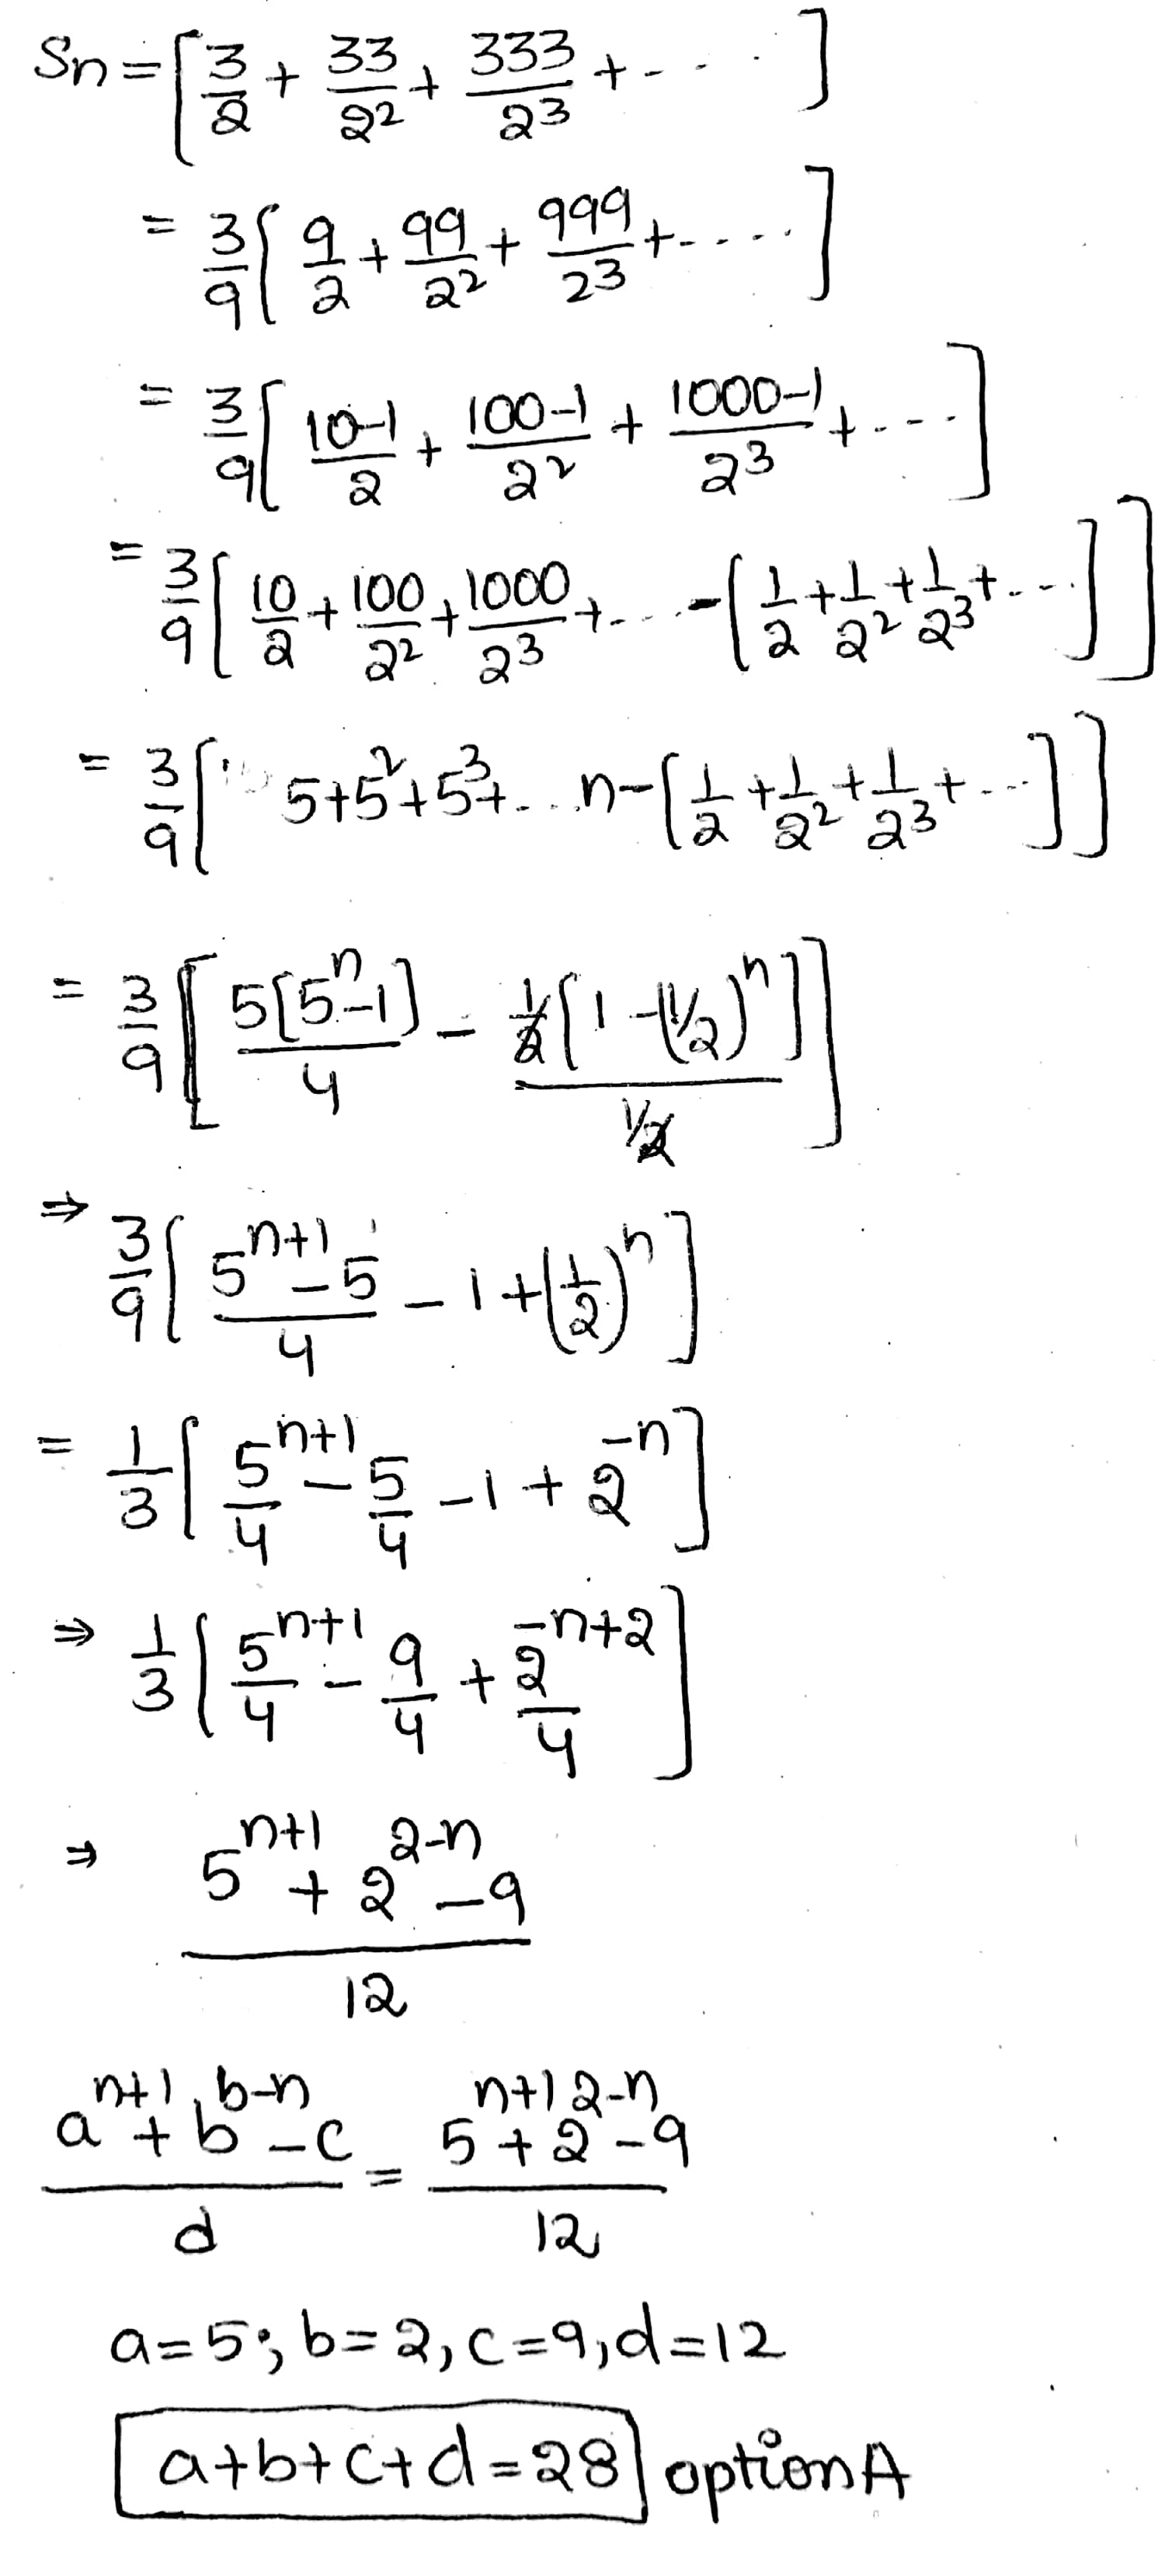 Sn = [3/2 + 33/2² + 333/2³ + - - - ]
= 3/9 [9/2 + 99/2² + 999/2³ + - - - - ]
= 3/9 [10-1/2 + 100-1/2² + 1000-1/2³ + - - - ]
= 3/9 [10/2 + 100/2² + 1000/2³ + - - - - [1/2 + 1/2² + 1/2³ + - - - ]]
= 3/9 [5+5²+5³+ - - - n - [1/2 + 1/2² + 1/2³ + - - - ]]
= 3/9 [5[5ⁿ-1]/4 - 1/2[1-(1/2)ⁿ]/1/2]
⇒ 3/9 [5ⁿ⁺¹-5/4 - 1 + (1/2)ⁿ]
= 1/3 [5ⁿ⁺¹/4 - 5/4 - 1 + 2⁻ⁿ]
⇒ 1/3 [5ⁿ⁺¹/4 - 9/4 + 2⁻ⁿ⁺²/4]
⇒ 5ⁿ⁺¹ + 2²⁻ⁿ - 9/12
aⁿ⁺¹ + b^(b-n) - c/d = 5ⁿ⁺¹ + 2²⁻ⁿ - 9/12
a=5; b=2, c=9, d=12
a+b+c+d=28 option A